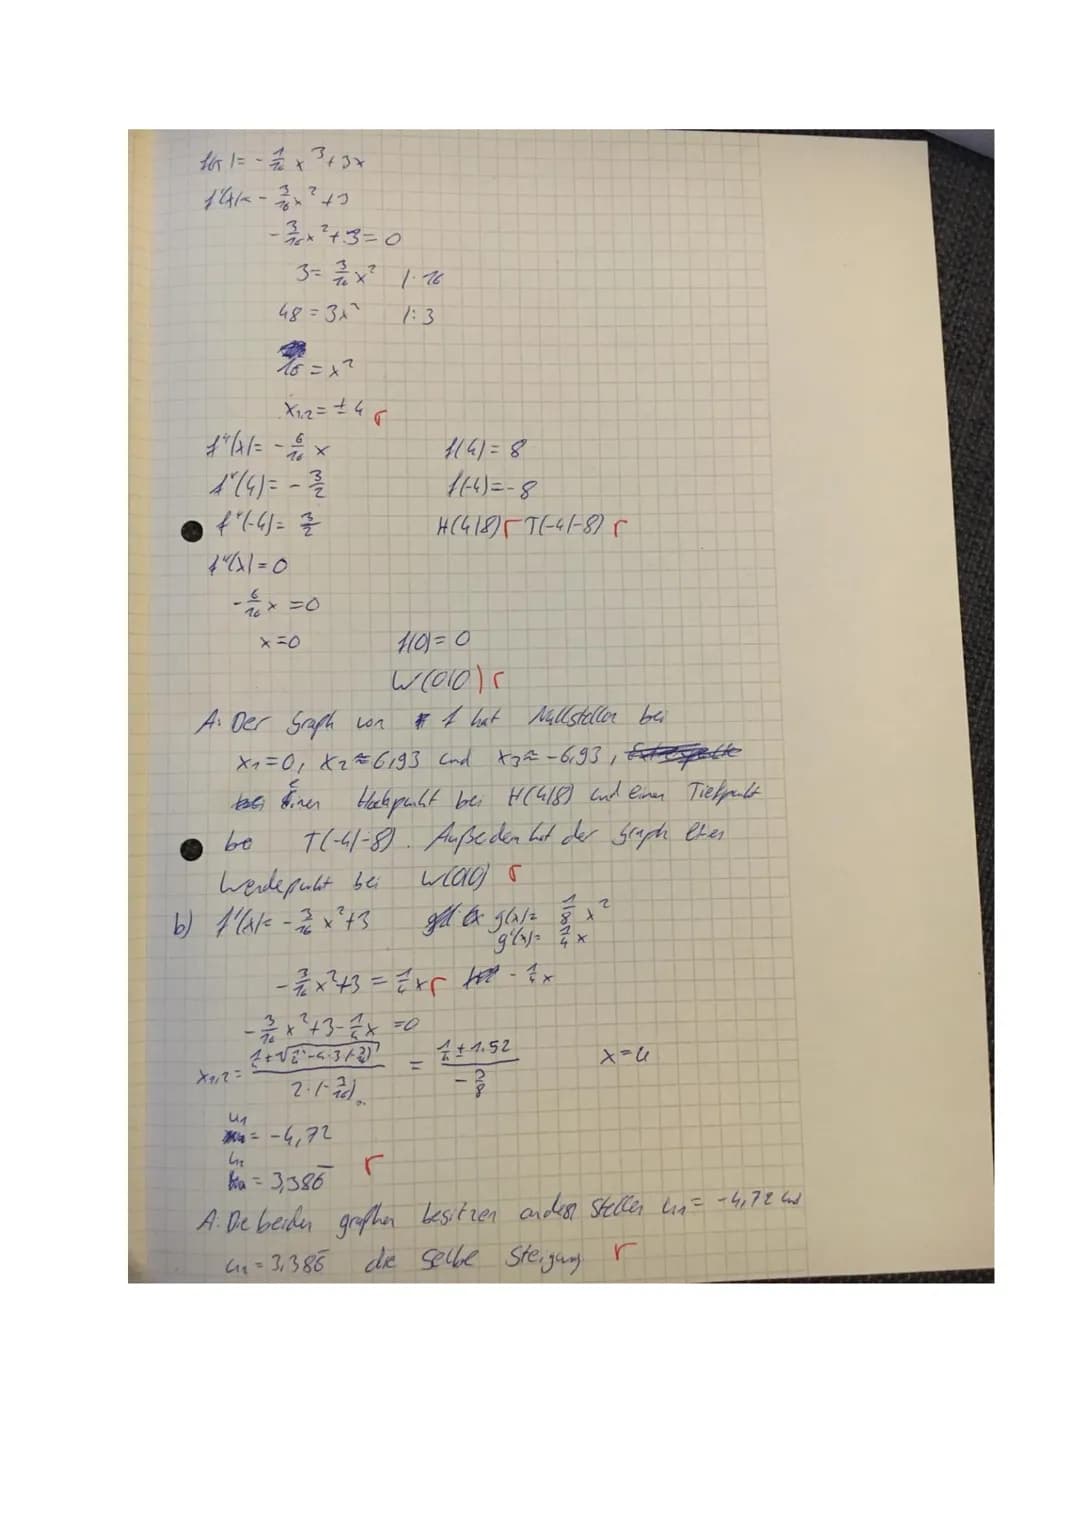 f(x)= -1/16 x³+3x
f'(x)= -3/16 x²+3
-3/16 x²+3=0
3= 3/16 x² |·16
48=3x² |:3
16=x²
x1,2=±4 r
f''(x)= -6/16 x f(4)=8
f''(4)= -3/2 f(-4)=-8
f''(-4)= 3/2 H(4|8) r T(-4|-8) r
f''(x)=0
-6/16 x =0
x=0 f(0)=0
W(0|0) r
A: Der Graph von f hat Nullstellen bei
x1=0, x2≈6,93 und x3≈-6,93,
einen Hochpunkt bei H(4|8) und einen Tiefpunkt
bei T(-4|-8). Außerdem hat der Graph einen
Wendepunkt bei W(0|0) r
b) f'(x)= -3/16 x²+3 g(x)= 1/8 x²
g'(x)= 1/4 x
-3/16 x²+3 = 1/4 x r - 1/4 x
-3/16 x²+3-1/4 x =0
x1,2= = 1/4 ± 1.52 / -3/8 x=u
u1 = -4,72
u2 = 3,386̅ r
A: Die beiden graphen besitzen an den Stellen u1= -4,72 und
u2=3,386̅ die selbe Steigung r